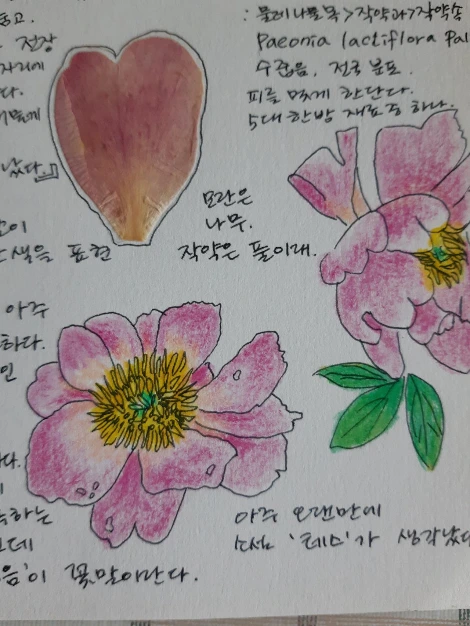 : 물레나물목>작약과>작약속
Paeonia lactiflora Pal
수줍음. 전국 분포.
피를 맑게 한단다.
5대 한방 재료중 하나.
고.
전장
자리에
다.
났다.』
이
색을 표현
모란은
나무.
작약은 풀이래.
아주
하다.
인
다.
하는
데
음'이 꽃말이란다.
아주 오랜만에
소설 '테스'가 생각났다